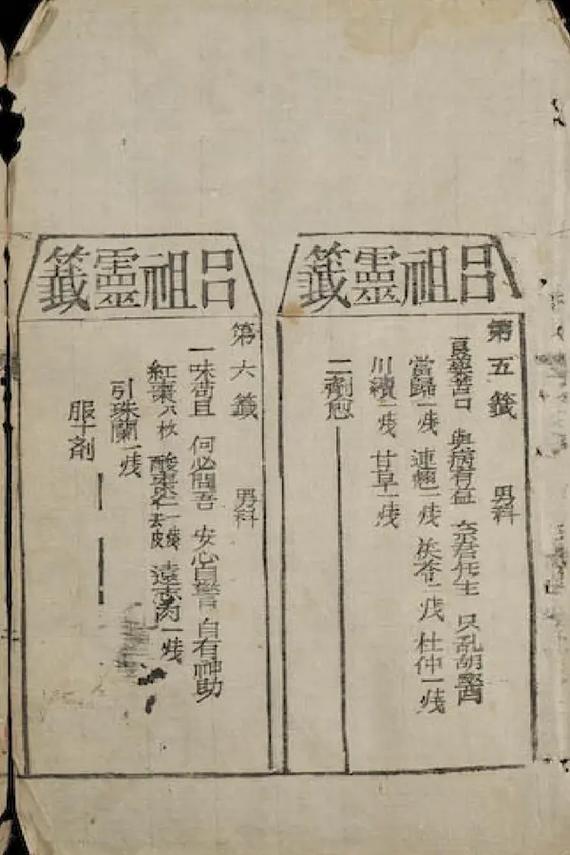 呂祖靈籤
第五籤 男科
良藥苦口 與病有益 奈君性生 只乱胡醫
當歸一戔 連翹一戔 茯苓二戔 杜仲一戔
川續一戔 甘草一戔
二劑愈
呂祖靈籤
第六籤 男科
一味苟且 何必問吾 安心自警 自有神助
紅棗六枚 酸棗仁一戔去皮 遠志肉一戔
引珠蘭一戔
服十剂